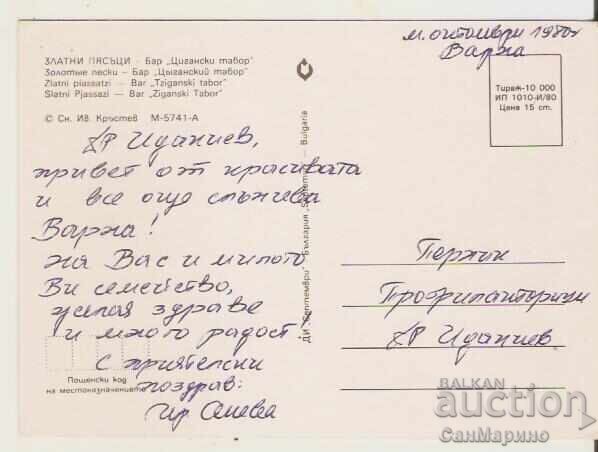 м. октомври 1980г
Варна
ЗЛАТНИ ПЯСЪЦИ - Бар „Цигански табор"
Золотые пески - Бар „Цыганский табор"
Zlatni piassatzi — Bar "Tziganski tabor"
Slatni Pjassazi — Bar "Ziganski Tabor"
© Сн. Ив. Кръстев М-5741-А
Тираж-10 000
ИП 1010-И/80
Цена 15 ст.
привет от красивата
и все още слънчева
Варна!
На Вас и милото
Ви семейство,
желая здраве
и много радост.
С приятелски
поздрав:
ДИ „Септември" - България „Septemvri" - Bulgaria
Перник
Профилакториум
Пощенски код
на местоназначението
BALKAN
auction
СанМарино